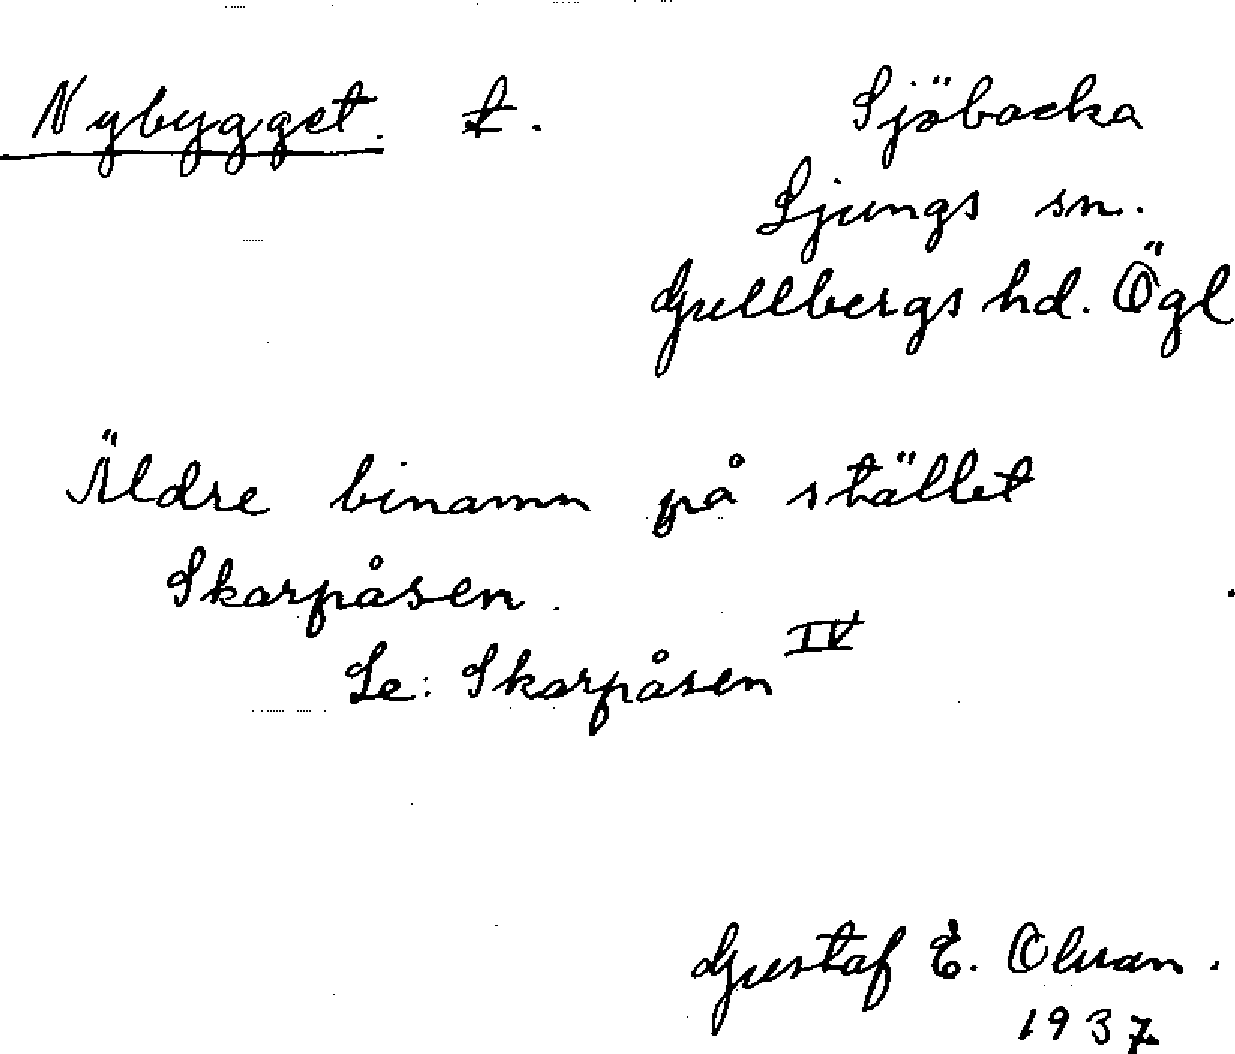 Nybygget. t. Sjöbacka
Ljungs sn.
Gullbergs hd. Ögl
Äldre binamn på stället
Skarpåsen.
Se: Skarpåsen IV
Gustaf E. Olsson.
1937